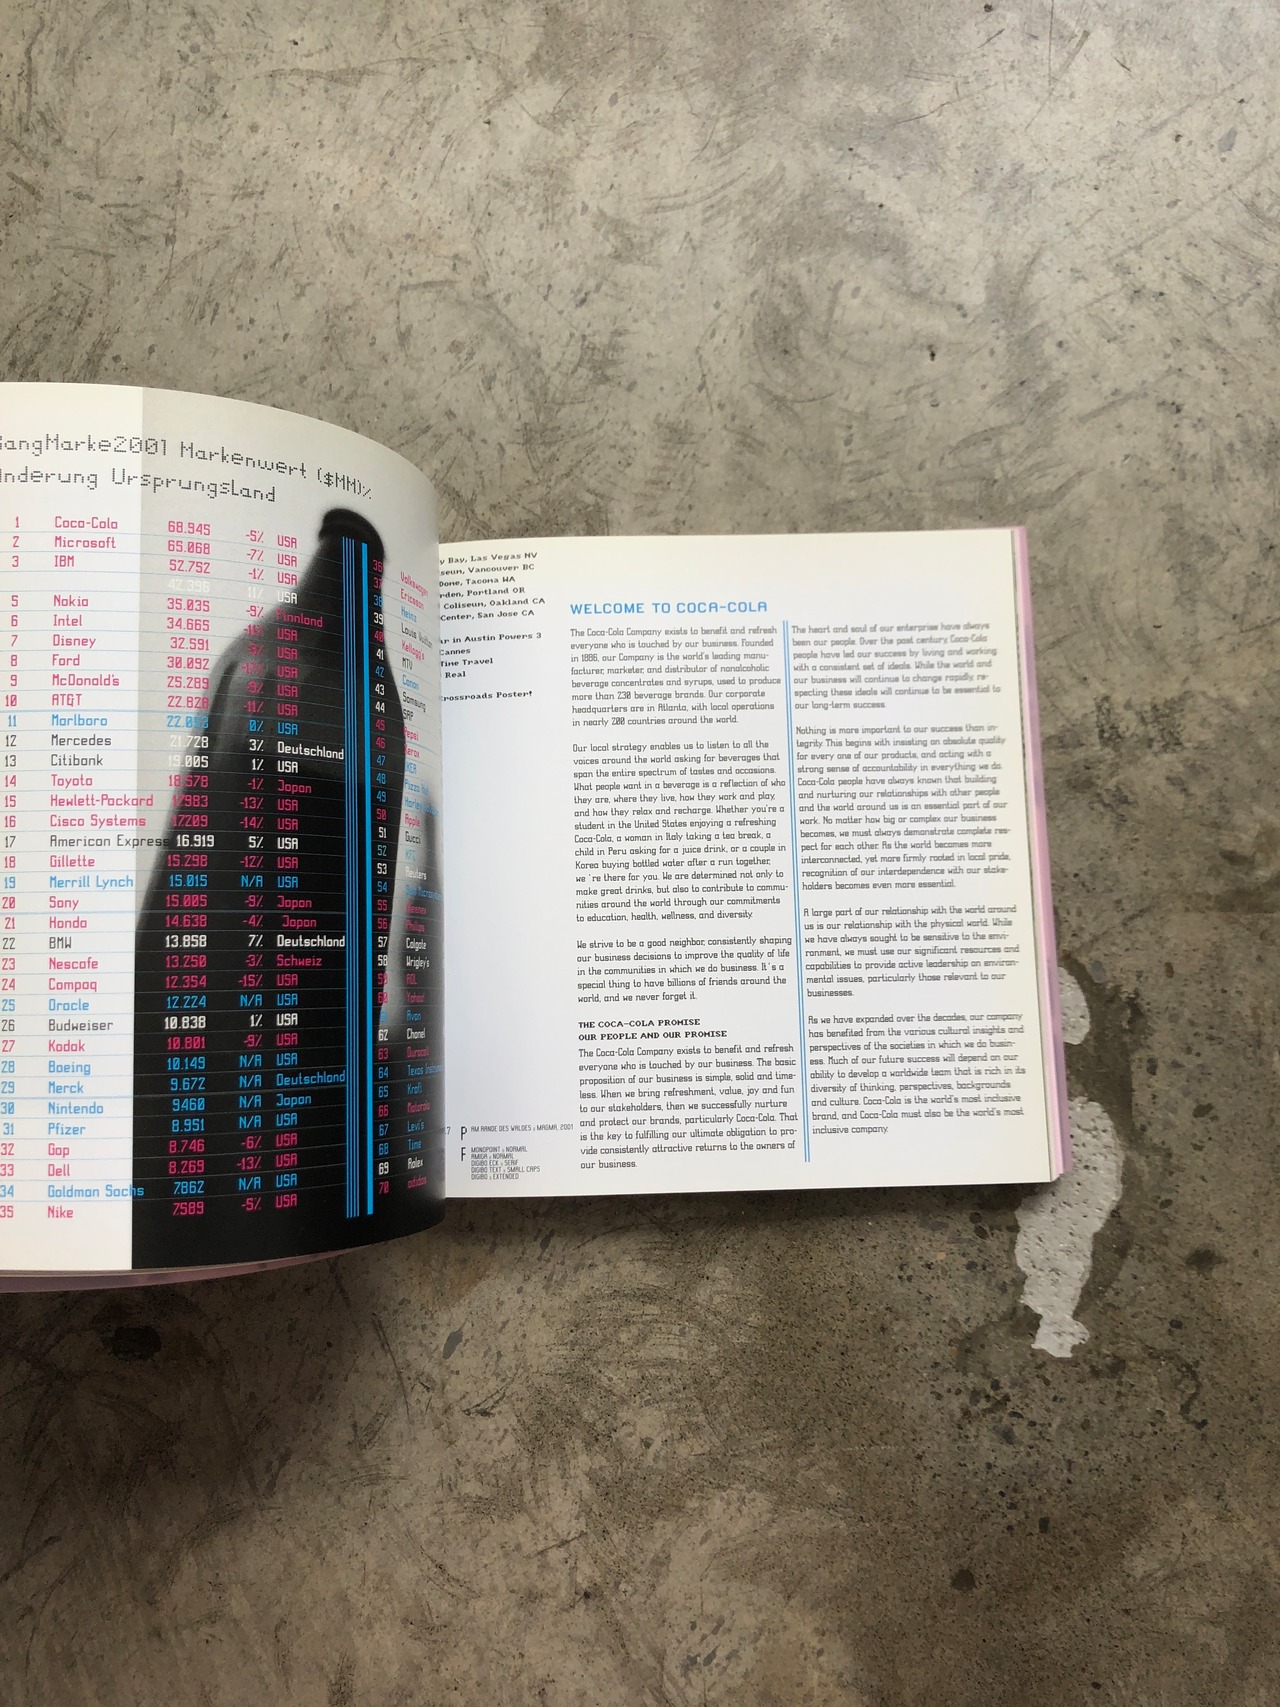 angMarke2001 Markenwert ($MM)%
nderung Ursprungsland
1 Coca-Cola 68.945 -5% USA
2 Microsoft 65.068 -7% USA
3 IBM 52.752 -1% USA
42.396 11% USA
5 Nokia 35.035 -9% Finnland
6 Intel 34.665 -11% USA
7 Disney 32.591 USA
8 Ford 30.092 USA
9 McDonald's 25.289 -9% USA
10 AT&T 22.828 -11% USA
11 Marlboro 0% USA
12 Mercedes 21.728 3% Deutschland
13 Citibank 19.005 1% USA
14 Toyota 18.578 -1% Japan
15 Hewlett-Packard 17983 -13% USA
16 Cisco Systems 17209 -14% USA
17 American Express 16.919 5% USA
18 Gillette 15.298 -12% USA
19 Merrill Lynch 15.015 N/A USA
20 Sony 15.005 -9% Japan
21 Honda 14.638 -4% Japan
22 BMW 13.858 7% Deutschland
23 Nescafe 13.250 -3% Schweiz
24 Compaq 12.354 -15% USA
25 Oracle 12.224 N/A USA
26 Budweiser 10.838 1% USA
27 Kodak 10.801 -9% USA
28 Boeing 10.149 N/A USA
29 Merck 9.672 N/A Deutschland
30 Nintendo 9460 N/A Japan
31 Pfizer 8.951 N/A USA
32 Gap 8.746 -6% USA
33 Dell 8.269 -13% USA
34 Goldman Sachs 7.862 N/A USA
35 Nike 7.589 -5% USA
36 Volkswagen
37 Ericsson
38 Heinz
39 Louis Vuitton
40 Kelloggs
41 MTV
42 Canon
43 Samsung
44 SAP
45 Pepsi
46 Xerox
47 IKEA
48 Pizza Hut
49 Harley
50 Apple
51 Gucci
52 KFC
53 Reuters
54 Sun Microsystems
55 Kleenex
56 Phillips
57 Colgate
58 Wrigley's
59 AOL
60 Yahoo!
Avon
62 Chanel
63 Duracell
64 Texas Instrum
65 Kraft
66 Motorola
67 Levi's
68 Time
69 Rolex
70 adidas
y Bay, Las Vegas NV
seun, Vancouver BC
Done, Tacona WA
rden, Portland OR
Coliseun, Oakland CA
Center, San Jose CA
ar in Austin Powers 3
Cannes
Tine Travel
Real
Crossroads Poster!
P AM RANDE DES WALDES : MAGMA, 2001
F MONOPOINT : NORMAL
AMIGA : NORMAL
DIGIBO ECK : SERIF
DIGIBO TEXT : SMALL CAPS
DIGIBO : EXTENDED
WELCOME TO COCA-COLA
The Coca-Cola Company exists to benefit and refresh
everyone who is touched by our business. Founded
in 1886, our Company is the world's leading manu-
facturer, marketer, and distributor of nonalcoholic
beverage concentrates and syrups, used to produce
more than 230 beverage brands. Our corporate
headquarters are in Atlanta, with local operations
in nearly 200 countries around the world.
Our local strategy enables us to listen to all the
voices around the world asking for beverages that
span the entire spectrum of tastes and occasions.
What people want in a beverage is a reflection of who
they are, where they live, how they work and play,
and how they relax and recharge. Whether you're a
student in the United States enjoying a refreshing
Coca-Cola, a woman in Italy taking a tea break, a
child in Peru asking for a juice drink, or a couple in
Korea buying bottled water after a run together,
we're there for you. We are determined not only to
make great drinks, but also to contribute to commu-
nities around the world through our commitments
to education, health, wellness, and diversity.
We strive to be a good neighbor, consistently shaping
our business decisions to improve the quality of life
in the communities in which we do business. It's a
special thing to have billions of friends around the
world, and we never forget it.
THE COCA-COLA PROMISE
OUR PEOPLE AND OUR PROMISE
The Coca-Cola Company exists to benefit and refresh
everyone who is touched by our business. The basic
proposition of our business is simple, solid and time-
less. When we bring refreshment, value, joy and fun
to our stakeholders, then we successfully nurture
and protect our brands, particularly Coca-Cola. That
is the key to fulfilling our ultimate obligation to pro-
vide consistently attractive returns to the owners of
our business.
The heart and soul of our enterprise have always
been our people. Over the past century, Coca-Cola
people have led our success by living and working
with a consistent set of ideals. While the world and
our business will continue to change rapidly, re-
specting these ideals will continue to be essential to
our long-term success.
Nothing is more important to our success than in-
tegrity. This begins with insisting on absolute quality
for every one of our products, and acting with a
strong sense of accountability in everything we do.
Coca-Cola people have always known that building
and nurturing our relationships with other people
and the world around us is an essential part of our
work. No matter how big or complex our business
becomes, we must always demonstrate complete res-
pect for each other. As the world becomes more
interconnected, yet more firmly rooted in local pride,
recognition of our interdependence with our stake-
holders becomes even more essential.
A large part of our relationship with the world around
us is our relationship with the physical world. While
we have always sought to be sensitive to the envi-
ronment, we must use our significant resources and
capabilities to provide active leadership on environ-
mental issues, particularly those relevant to our
businesses.
As we have expanded over the decades, our company
has benefited from the various cultural insights and
perspectives of the societies in which we do busin-
ess. Much of our future success will depend on our
ability to develop a worldwide team that is rich in its
diversity of thinking, perspectives, backgrounds
and culture. Coca-Cola is the world's most inclusive
brand, and Coca-Cola must also be the world's most
inclusive company.